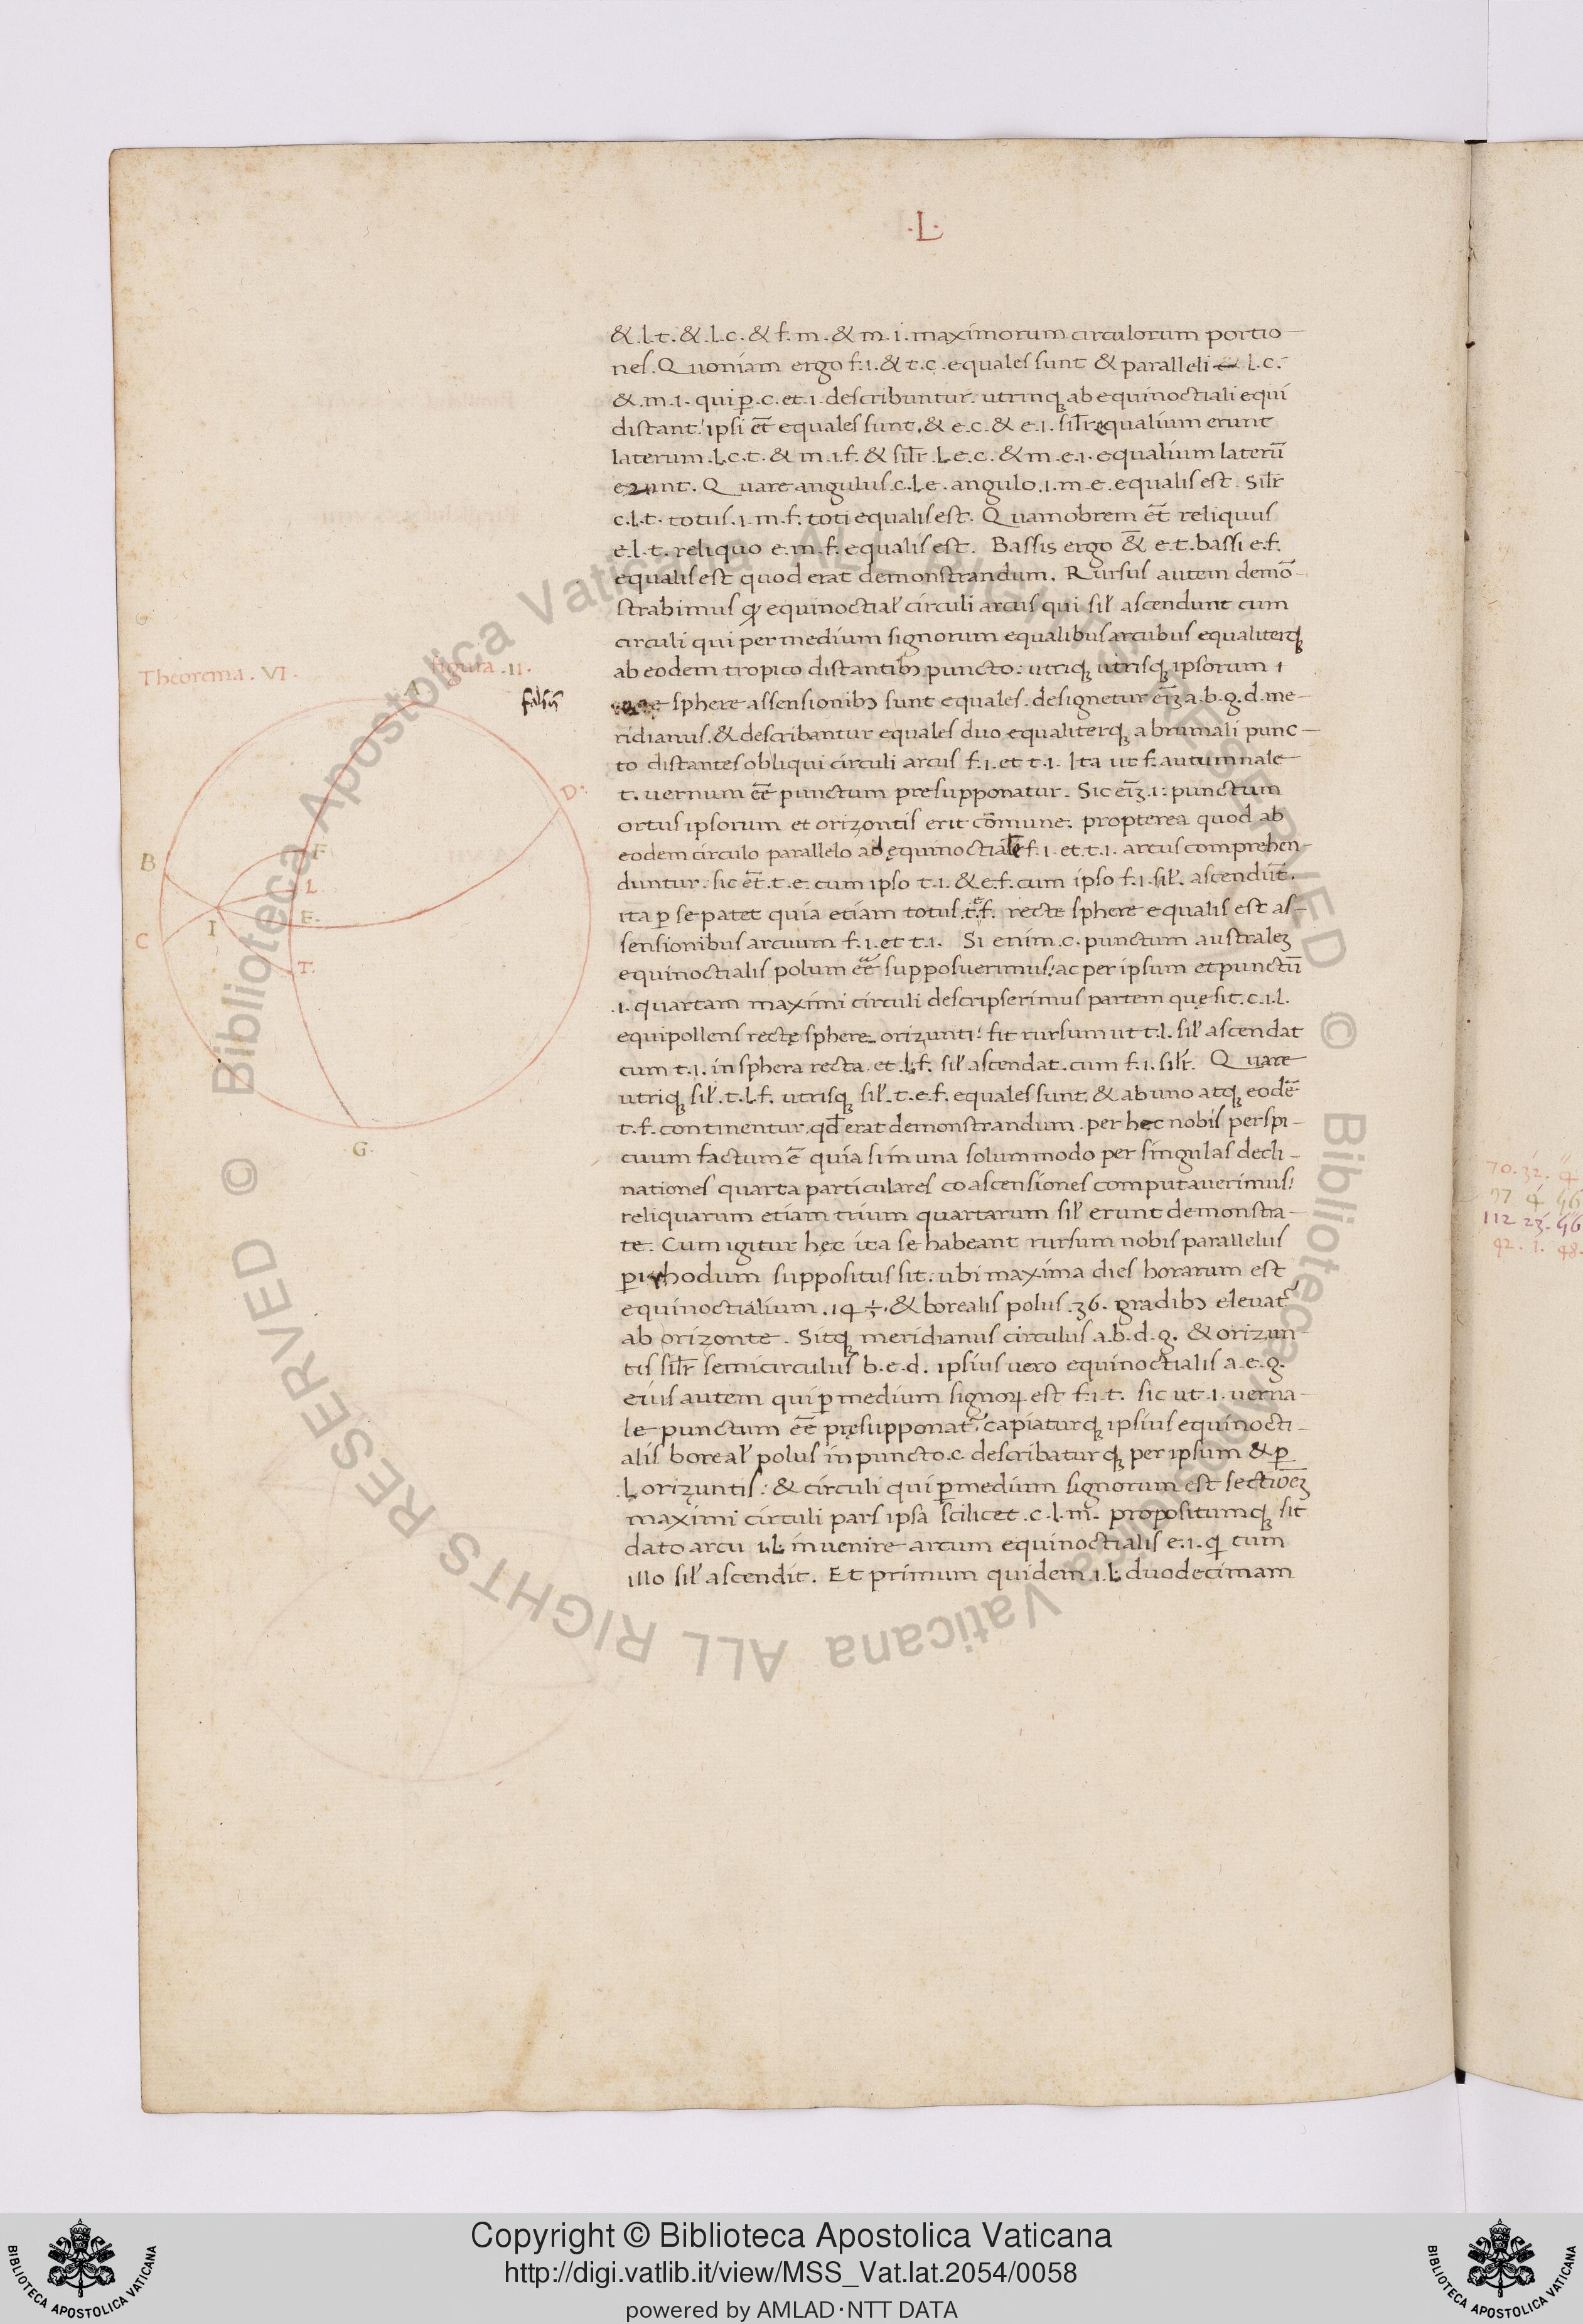 ·L·
& .l.t. & .l.c. & f.m. & m.i. maximorum circulorum portio-
nes. Quoniam ergo f.i. & t.c. equales sunt & paralleli l.c.
& .m.i. qui ꝑ .c. et .i. describuntur. utrinqꝫ ab equinoctiali equi
distant. ipsi et̄ equales sunt. & e.c. & e.i. silr̄ equalium erunt
laterum .l.c.t. & m.i.f. & silr̄ .l.e.c. & m.e.i. equalium laterū
erunt. Quare angulus .c.l.e. angulo .i.m.e. equalis est. Silr̄
c.l.t. totus .i.m.f. toti equalis est. Quamobrem et̄ reliquus
e.l.t. reliquo e.m.f. equalis est. Bassis ergo & e.t. bassi e.f.
equalis est quod erat demonstrandum. Rursus autem demō-
strabimus ꝙ equinoctial̓ circuli arcus qui sil̓ ascendunt cum
circuli qui per medium signorum equalibus arcubus equaliterqꝫ
ab eodem tropico distantibꝫ puncto. utriqꝫ utrisqꝫ ipsorum i
sphere assensionibꝫ sunt equales. designetur eīꝫ a.b.g.d. me-
ridianus. & describantur equales duo equaliterqꝫ a brumali punc-
to distantes obliqui circuli arcus f.i. et t.i. Ita ut f. autumnale
t. uernum eē punctum presupponatur. Sic eīꝫ .i. punctum
ortus ipsorum et orizontis erit cōmune. propterea quod ab
eodem circulo parallelo ad ęquinoctialē f.i. et .t.i. arcus comprehen-
duntur. sic et̄ .t.e. cum ipso t.i. & e.f. cum ipso f.i. sil̓. ascendūt.
ita ꝑ se patet quia etiam totus .t.e.f. recte sphere equalis est as-
sensionibus arcuum f.i. et t.i. Si enim .c. punctum australeꝫ
equinoctialis polum eē supposuerimus. ac per ipsum et punctū
.i. quartam maximi circuli descripserimus partem quę sit .c.i.l.
equipollens rectę sphere orizunti. fit rursum ut t.l. sil̓ ascendat
cum t.i. in sphera recta et .l.f. sil̓ ascendat .cum f.i. silr̄. Quare
utriqꝫ sil̓ .t.l.f. utrisqꝫ sil̓ .t.e.f. equales sunt. & ab uno atqꝫ eodē
t.f. continentur. qd̄ erat demonstrandum. per hec nobis perspi-
cuum factum ē quia si in una solummodo per singulas decli-
nationes quarta particulares coascensiones computauerimus.
reliquarum etiam trium quartarum sil̓ erunt demonstra-
te. Cum igitur hęc ita se habeant rursum nobis parallelus
ꝑ rhodum suppositus sit. ubi maxima dies horarum est
equinoctialium .14 ½. & borealis polus .36. gradibꝫ eleuat̉
ab orizonte. Sitqꝫ meridianus circulus a.b.d.g. & orizun
tis silr̄ semicirculus b.e.d. ipsius uero equinoctialis a.e.g.
eius autem qui ꝑ medium signoꝝ est f.i.t. sic ut .i. uerna-
le punctum eē pręsupponat̉. capiaturqꝫ ipsius equinocti-
alis boreal̓ polus in puncto .c. describaturqꝫ per ipsum & ꝑ
.l. orizuntis. & circuli qui ꝑ medium signorum est sectioēꝫ
maximi circuli pars ipsa scilicet .c.l.m. propositumqꝫ sit
dato arcu .i.l. inuenire arcum equinoctialis e.i. qi cum
illo sil̓ ascendit. Et primum quidem .i.l. duodecimam
Theorema .VI.
figura .II.
falsū
A
D
B
F
L
I
E.
C
T.
G
70. 32. 4
77 4 46
112 23. 46
42. 1. 48.
Copyright © Biblioteca Apostolica Vaticana
http://digi.vatlib.it/view/MSS_Vat.lat.2054/0058
powered by AMLAD·NTT DATA
BIBLIOTECA APOSTOLICA VATICANA
BIBLIOTECA APOSTOLICA VATICANA
© Biblioteca Apostolica Vaticana ALL RIGHTS RESERVED
© Biblioteca Apostolica Vaticana ALL RIGHTS RESERVED